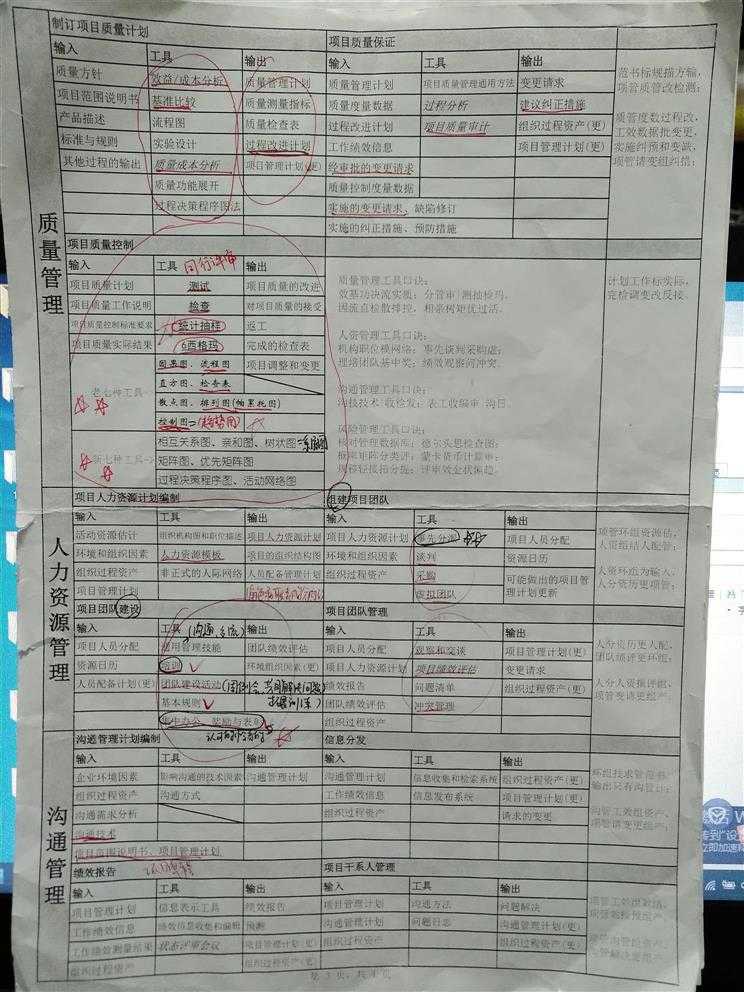 制订项目质量计划
项目质量保证
输入 工具 输出 输入 工具 输出
质量方针 效益/成本分析 质量管理计划 质量管理计划 项目质量管理通用方法 变更请求
项目范围说明书 基准比较 质量测量指标 质量度量数据 过程分析 建议纠正措施
产品描述 流程图 质量检查表 过程改进计划 项目质量审计 组织过程资产(更)
标准与规则 实验设计 过程改进计划 工作绩效信息 项目管理计划(更)
其他过程的输出 质量成本分析 项目管理计划(更) 经审批的变更请求
质量功能展开 质量控制度量数据
过程决策程序图法 实施的变更请求，缺陷修订
实施的纠正措施、预防措施
范书标规描方输，
项管质管改检测；
质管度数过程改，
工效数据批变更，
实施纠预和变缺，
项管请变组纠措；
质量管理
项目质量控制
输入 工具 同行评审 输出
项目质量计划 测试 项目质量的改进
项目质量工作说明 检查 对项目质量的接受
项目质量控制标准要求 统计抽样 返工
项目质量实际结果 6西格玛 完成的检查表
因果图、流程图 项目调整和变更
直方图、检查表
老七种工具 散点图、排列图(帕累托图)
控制图 (趋势图)
相互关系图、亲和图、树状图
新七种工具 矩阵图、优先矩阵图
过程决策程序图、活动网络图
质量管理工具口诀：
效基功决流实质；分管审/测抽检玛，
因流直检散排控，相亲树矩优过活。
人资管理工具口诀：
机构职位模网络；事先谈判采购虚；
理培团队基中奖；绩效观察问冲突。
沟通管理工具口诀：
沟技技术/收检发；表工收编审/沟日。
风险管理工具口诀：
计划工作标实际，
完检调变改反接。
人力资源管理
项目人力资源计划编制
组建项目团队
输入 工具 输出 输入 工具 输出
活动资源估计 组织机构图和职位描述 项目人力资源计划 项目人力资源计划 事先分派 项目人员分配
环境和组织因素 人力资源模板 项目的组织结构图 环境和组织因素 谈判 资源日历
组织过程资产 非正式的人际网络 人员配备管理计划 组织过程资产 采购 可能做出的项目管理计划更新
项目管理计划 虚拟团队
项管环组资源估，
人资组结人配管；
人资环组为输入，
人分资历更项管；
项目团队建设
项目团队管理
输入 工具 (沟通、交流) 输出 输入 工具 输出
项目人员分配 通用管理技能 团队绩效评估 项目人员分配 观察和交谈 项目管理计划(更)
资源日历 培训 环境组织因素(更) 项目人力资源计划 项目绩效评估 变更请求
人员配备计划(更) 团队建设活动 绩效报告 问题清单 组织过程资产(更)
基本规则 团队绩效评估 冲突管理
集中办公、奖励与表彰 组织过程资产
人分资历更人配，
团队绩评更环组；
人分人资报评组，
项管变更组产；
沟通管理
沟通管理计划编制
信息分发
输入 工具 输出 输入 工具 输出
企业环境因素 影响沟通的技术因素 沟通管理计划 沟通管理计划 信息收集和检索系统 组织过程资产(更)
组织过程资产 沟通方式 工作绩效信息 信息发布系统 项目管理计划(更)
沟通需求分析 组织过程资产 请求的变更
沟通技术
项目范围说明书、项目管理计划
环组技求管范书，
输出只有沟管计；
沟管工效组资产，
项管请变更组产；
绩效报告
项目干系人管理
输入 工具 输出 输入 工具 输出
项目管理计划 信息表示工具 绩效报告 项目管理计划 沟通方法 问题解决
工作绩效信息 绩效信息收集和编辑 预测 沟通管理计划 问题日志 沟通管理计划(更)
工作绩效测量结果 状态评审会议 项目管理计划(更) 组织过程资产 组织过程资产(更)
组织过程资产 组织过程资产(更)
第 3 页，共 4 页